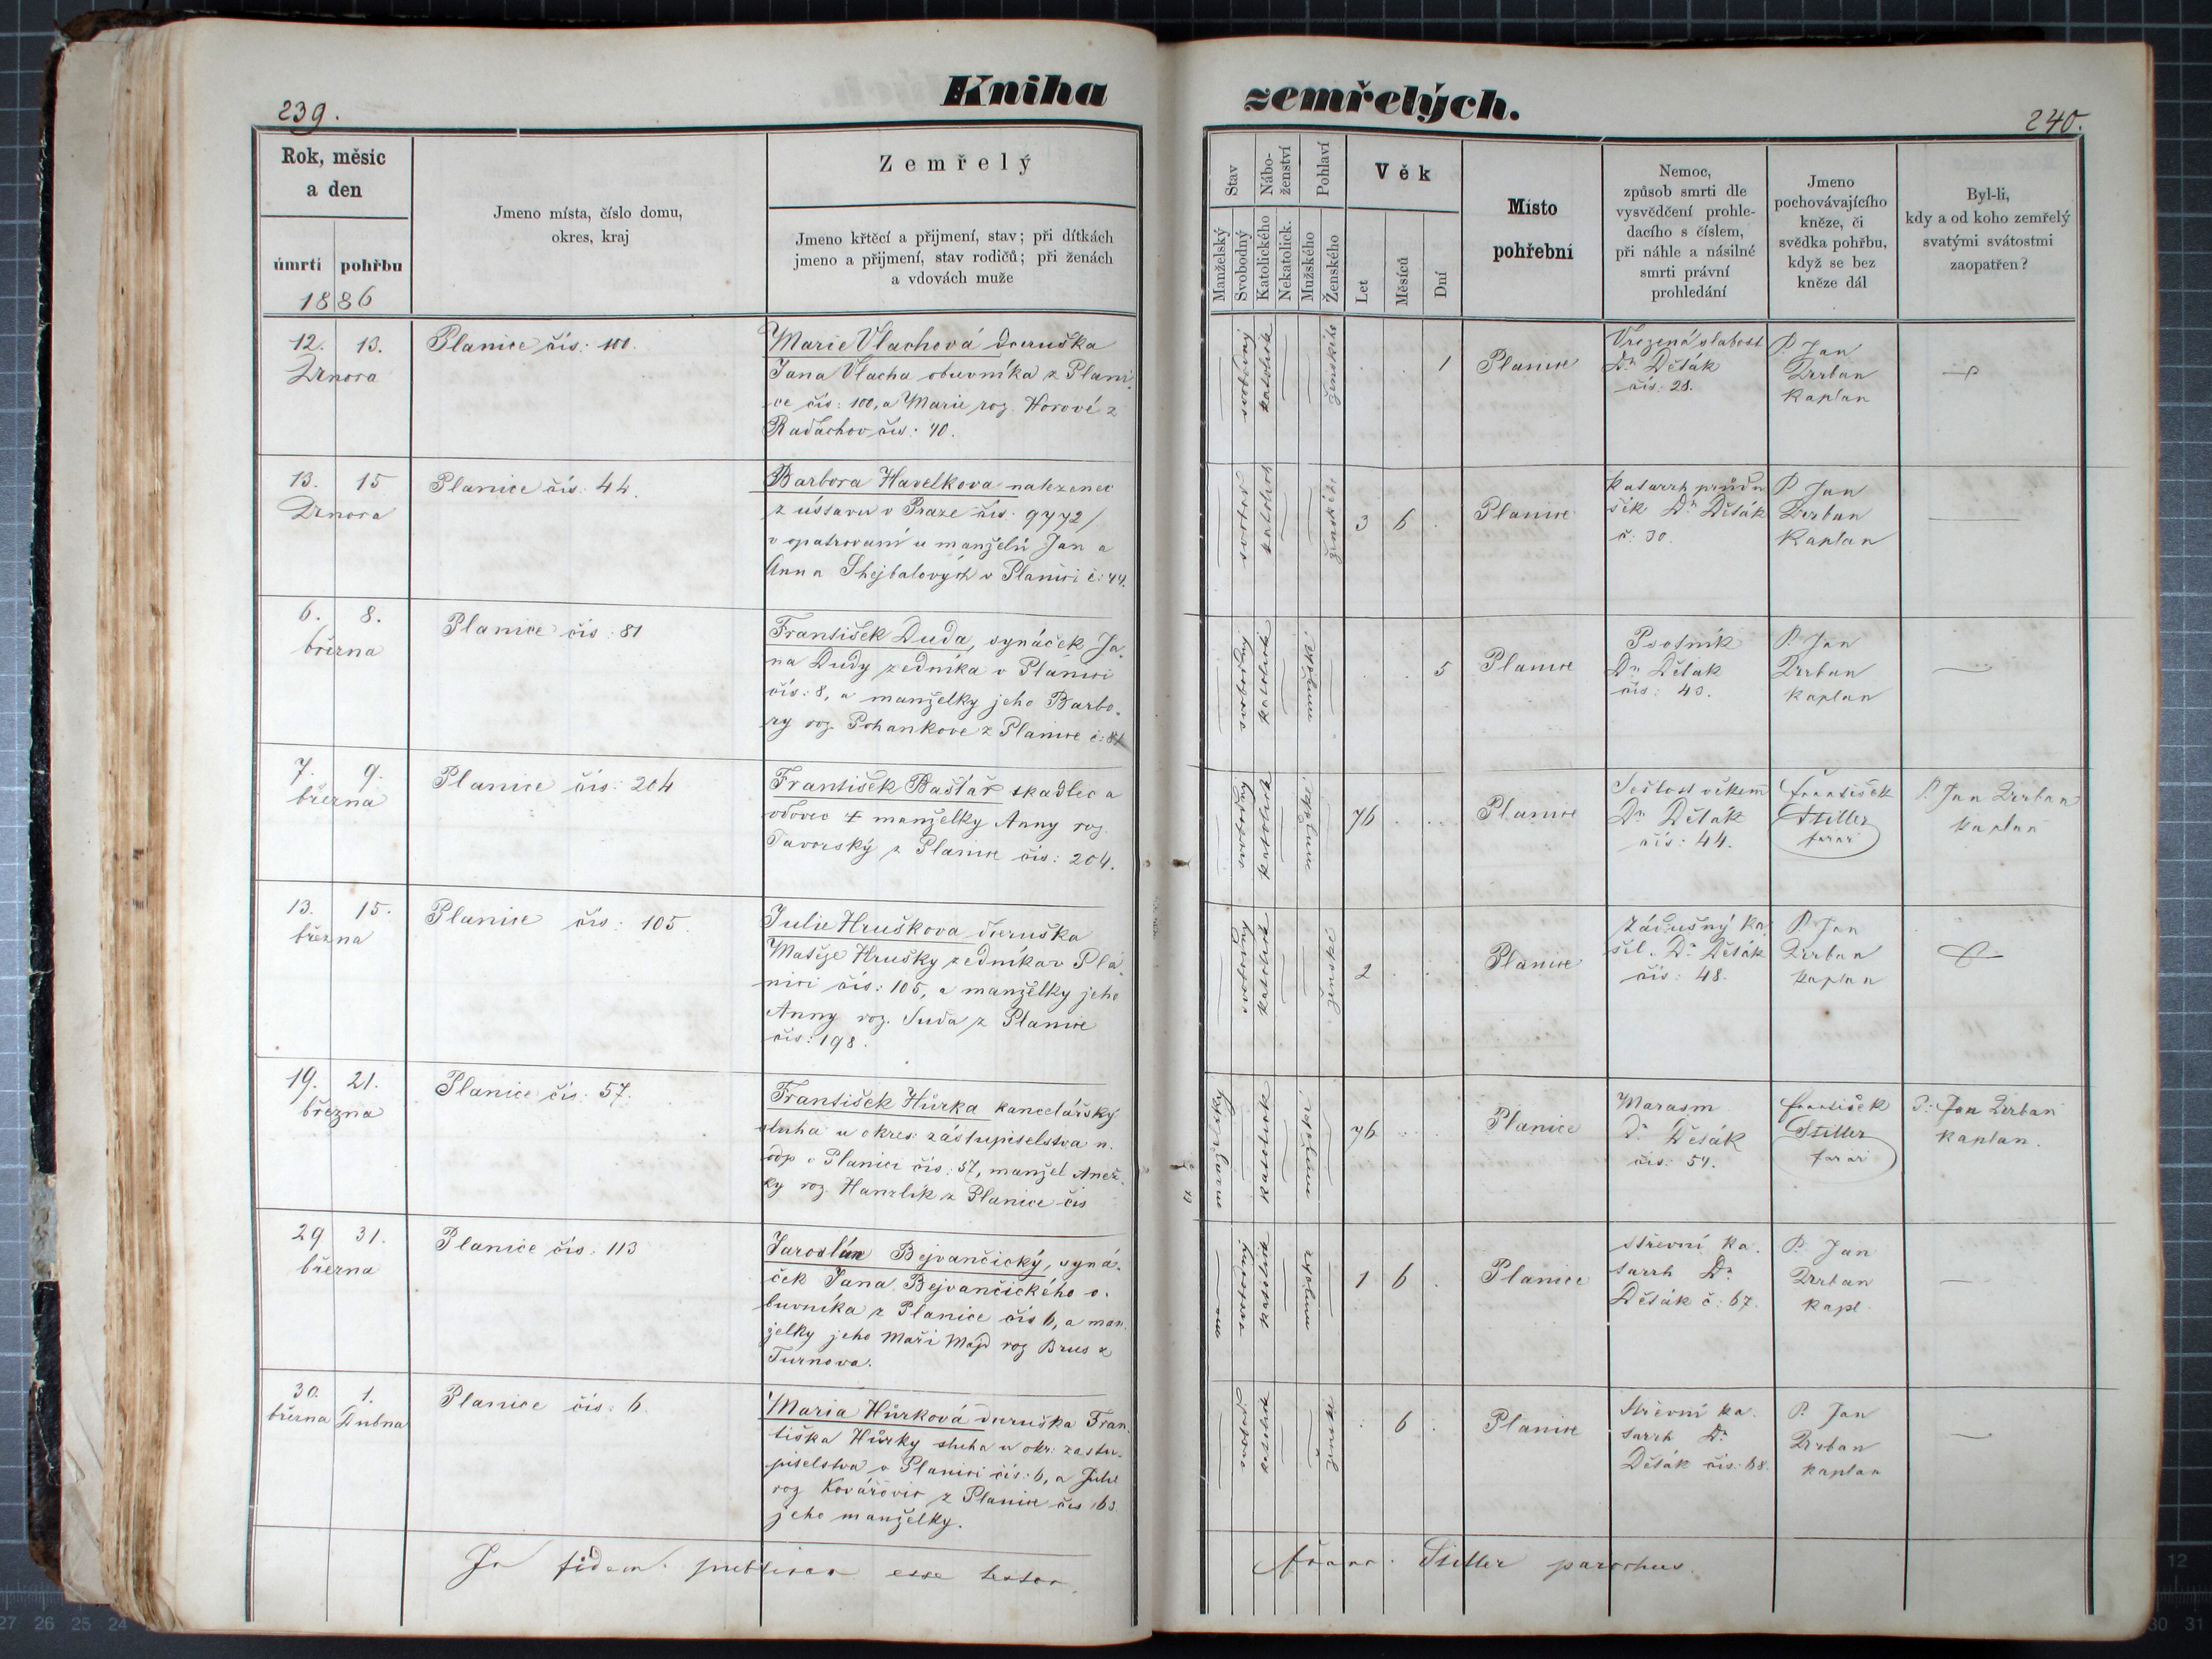 Kniha
239.
Rok, měsíc
a den
úmrtí
pohřbu
1886
Jmeno místa, číslo domu,
okres, kraj
Zemřelý
Jmeno křtěcí a přijmení, stav; při dítkách
jmeno a přijmení, stav rodičů; při ženách
a vdovách muže
12. 13.
Února
Planice čís: 100.
Marie Vlachová dceruška
Jana Vlacha obuvníka z Plani-
ce čís: 100, a Marie roz. Horové z
čís: 40.
13. 15
Února
Planice čís: 44.
Barbora Havelkova nalezenec
z ústavu v Praze čís. 9772/
v opatrovaní u manželů Jan a
Anna Shejbalových v Planici č: 44.
6. 8.
března
Planice čís: 81
František Duda, synáček Ja-
na Dudy zedníka v Planici
čís: 8, a manželky jeho Barbo-
ry roz. Pohankove z Planice č: 81
7. 9.
března
Planice čís: 204
František Baštář tkadlec a
vdovec † manželky Anny roz.
Tavorský z Planice čís: 204.
13. 15.
března
Planice čís: 105.
Julie Hruškova dceruška
Matěje Hrušky zedníka v Pla-
nici čís: 105, a manželky jeho
Anny roz. Suda z Planice
čís: 198.
19. 21.
března
Planice čís: 57.
František Hůrka kancelářský
sluha u okres zástupitelstva n.
odp v Planici čís: 57, manžel Anež-
ky roz. Hanzlík z Planice čís
29 31.
března
Planice čís: 113
Jaroslav Bejvančický, syná-
ček Jana Bejvančického o-
buvníka z Planice čís 6, a man-
želky jeho Maři Majd roz Brus z
Turnova.
30. 1.
března Dubna
Planice čís: 6.
Maria Hůrková dceruška Fran-
tiška Hůrky sluha u okr: zastu-
pitelstva v Planici čís: 6, a Julie
roz Kovářovic z Planice čís 163
jeho manželky.
In fidem publicam esse testor.
zemřelých.
240.
Stav
Manželský
Svobodný
Nábo-
ženství
Katolického
Nekatolick.
Pohlaví
Mužského
Ženského
Věk
Let
Měsíců
Dní
Místo
pohřební
Nemoc,
způsob smrti dle
vysvědčení prohle-
dacího s číslem,
při náhle a násilné
smrti právní
prohledání
Jmeno
pochovávajícího
kněze, či
svědka pohřbu,
když se bez
kněze dál
Byl-li,
kdy a od koho zemřelý
svatými svátostmi
zaopatřen?
svobodný katolick ženského
1
Planice
Vrozená slabost
Dr Děták
čís: 28.
P. Jan
Urban
kaplan
svobod katolick ženského
3 6
Planice
Katarrh průdu
šek Dr Děták
č: 30.
P Jan
Urban
Kaplan
svobodný katolick mužské
5
Planice
Psotník
Dr Děták
čís: 43.
P. Jan
Urban
kaplan
svobodný katolick mužské
76
Planice
Sešlost věkem
Dr Děták
čís: 44.
František
Stiller
farář
P. Jan Urban
kaplan
svobodný katolick ženské
2
Planice
Zádušný ka
šel. Dr Děták
čís: 48.
P. Jan
Urban
kaplan
manželský katolick mužské
76
Planice
Marasm
Dr Děták
čís: 54.
František
Stiller
farář
P: Jan Urban
kaplan.
svobodný katolick mužské
1 6
Planice
Střevní ka-
tarrh Dr
Děták č: 67.
P. Jan
Urban
kapl.
svobod katolick ženské
6
Planice
Střevní ka-
tarrh Dr
Děták čís: 68.
P. Jan
Urban
kaplan
Franc. Stiller parochus.